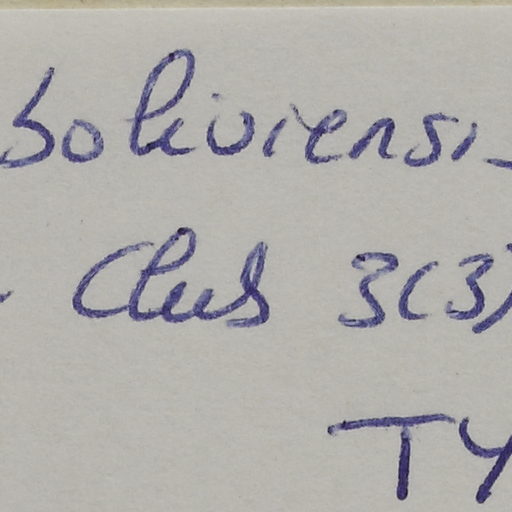 boliviensi
Club 3(3)
TY